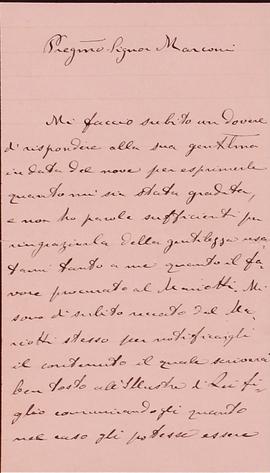 Pregmo Signor Marconi
Mi faccio subito un dovere
di rispondere alla sua gentilma
in data del nove per esprimerle
quanto mi sia stata gradita,
e non ho parole sufficienti per
ringraziarla della gentilezza usa
tami tanto a me quanto il fa
vore procurato al Mariotti. Mi
sono di subito recato dal Ma
riotti stesso per notificargli
il contenuto il quale scriverà
ben tosto all'Illustre di Lei fi
glio comunicandogli quanto
nel caso gli potesse essere